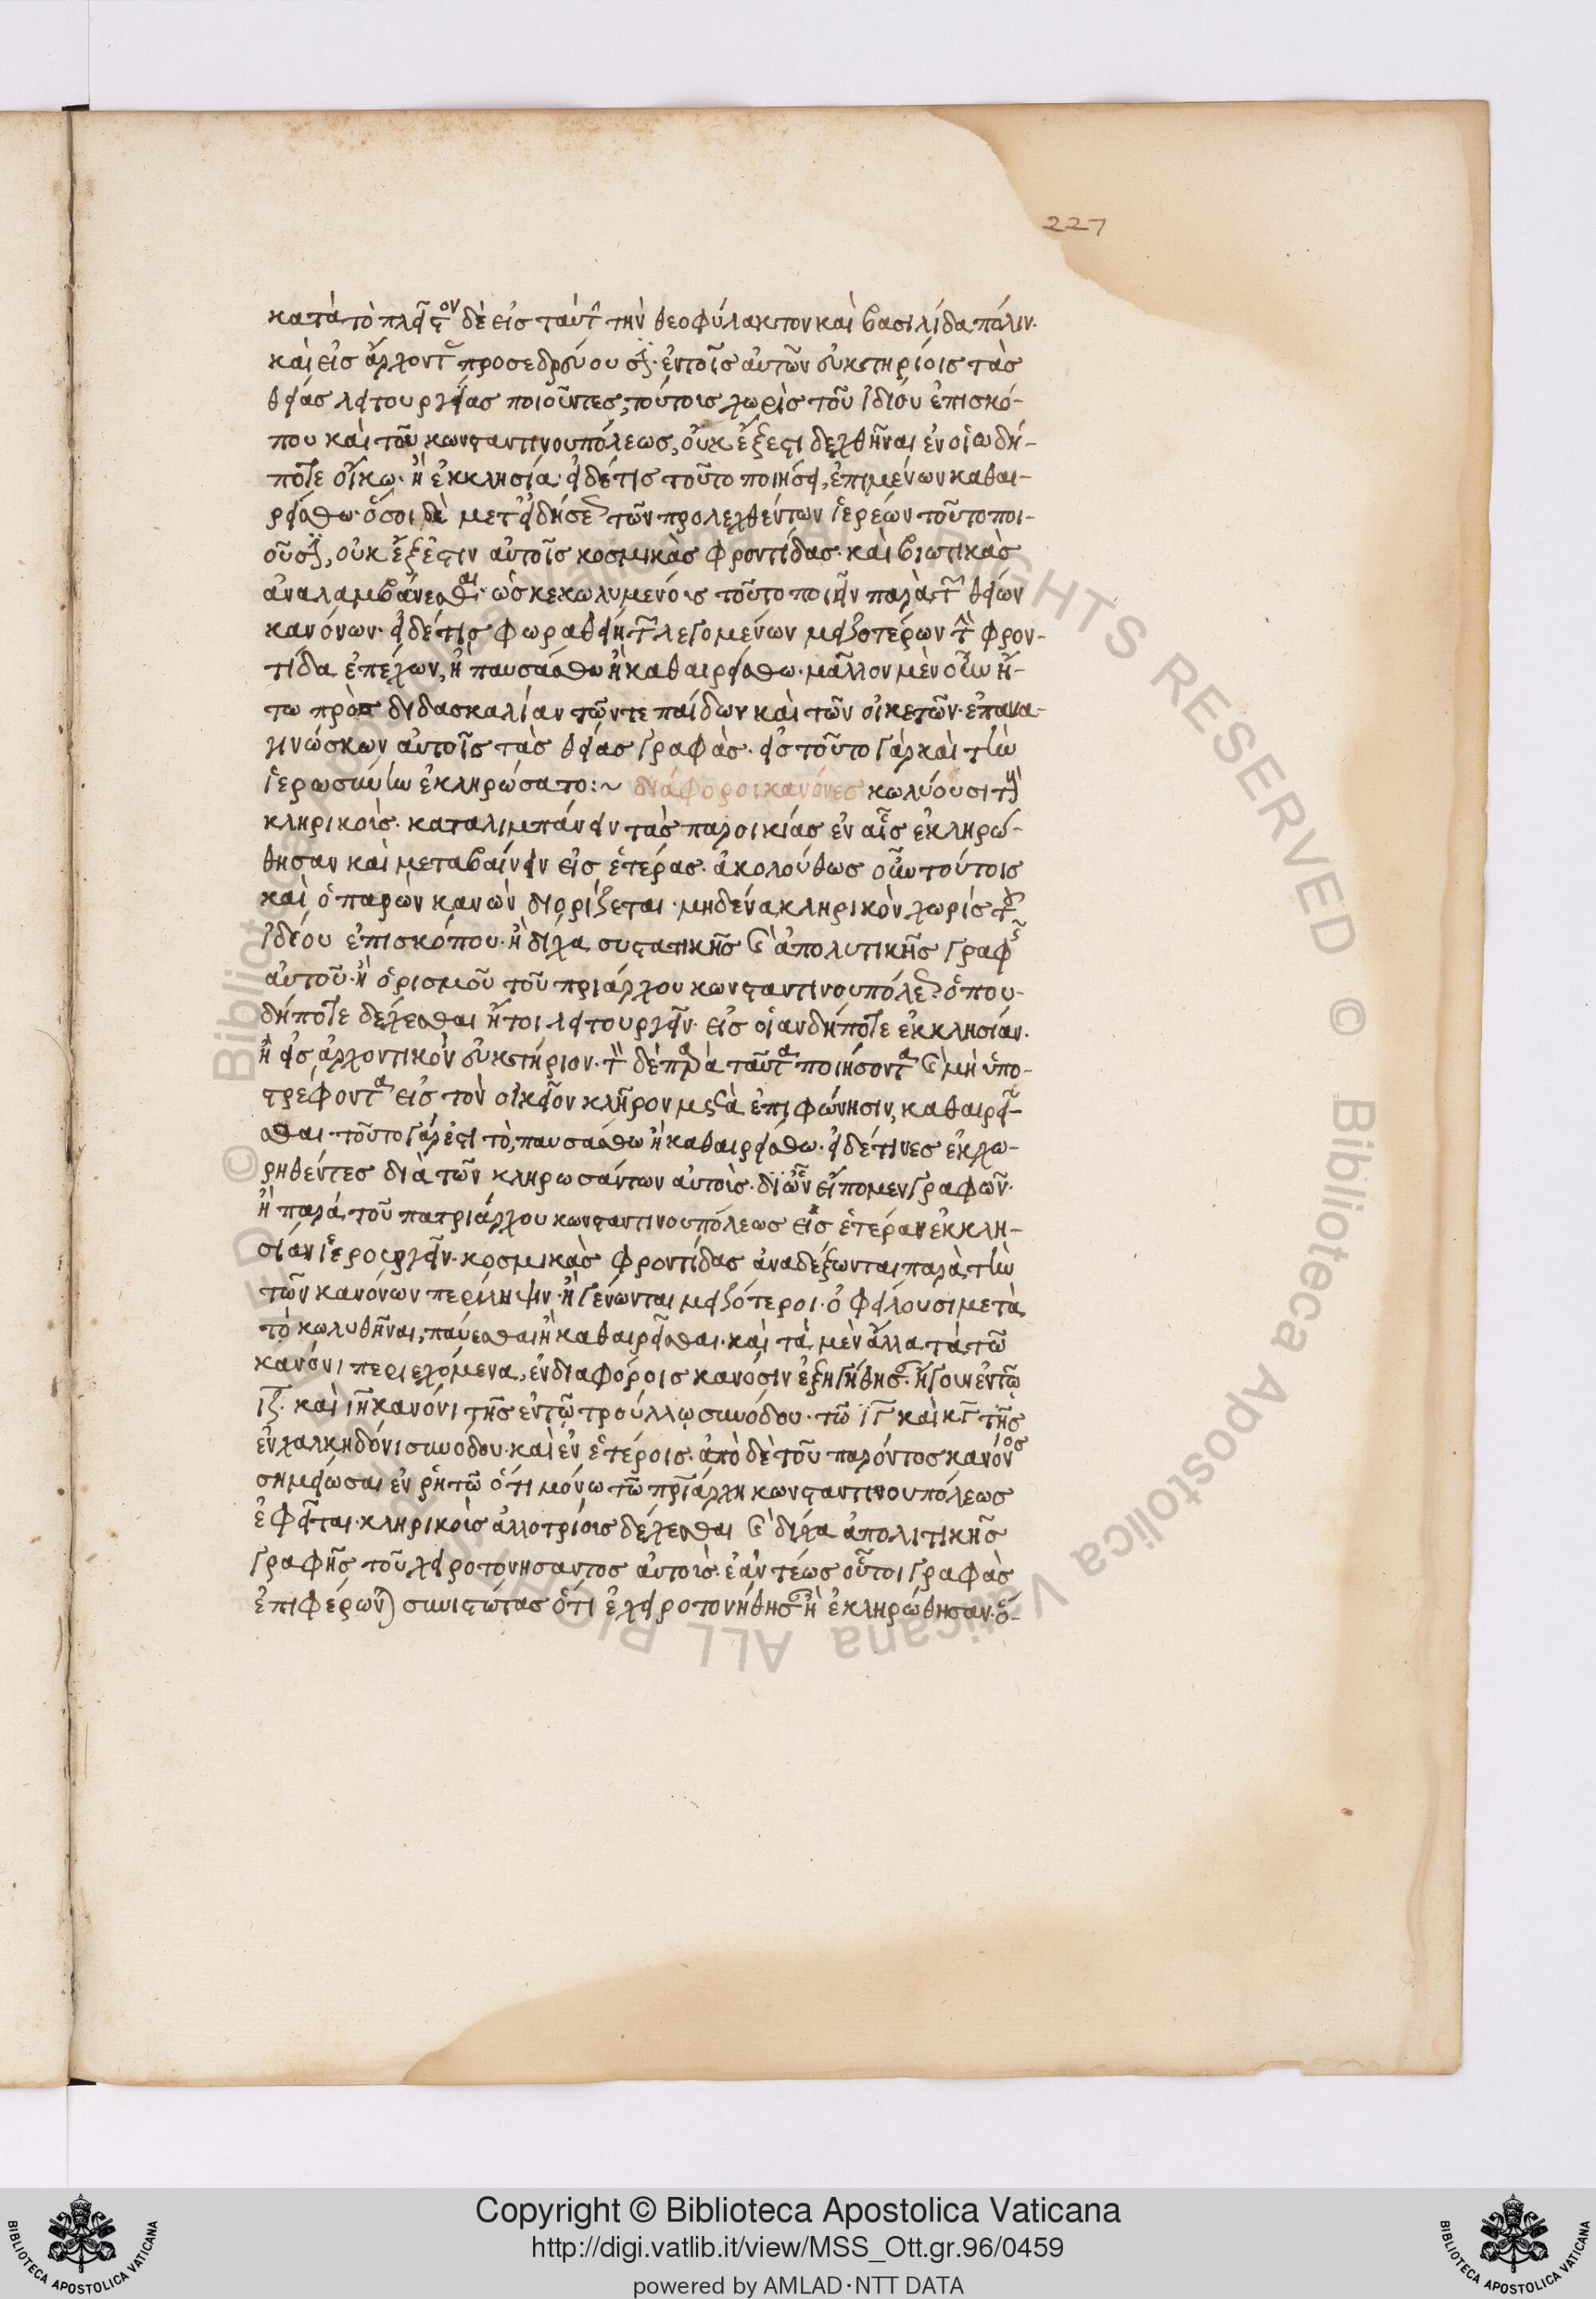 227
κατὰ τὸ πλεῖστον δὲ εἰς ταύτην τὴν θεοφύλακτον καὶ βασιλίδα πόλιν·
καὶ εἰς ἄρχοντας προσεδρεύουσι· ἐν τοῖς αὐτῶν εὐκτηρίοις τὰς
θείας λειτουργείας ποιοῦντες, τούτοις χωρὶς τοῦ ἰδίου ἐπισκό-
που καὶ τοῦ κωνσταντινουπόλεως, οὐκ ἔξεστι δεχθῆναι ἐν οἱωδή-
ποτε οἴκω· ἢ ἐκκλησία· εἰ δέ τις τοῦτο ποιήσει, ἐπιμένων καθαι-
ρείσθω· ὅσοι δὲ μετ' εἰδήσεως τῶν προλεχθέντων ἱερέων τοῦτο ποι-
οῦσι, οὐκ ἔξεστιν αὐτοῖς κοσμικὰς φροντίδας· καὶ βιωτικὰς
ἀναλαμβάνεσθαι· ὡς κεκωλυμένοις τοῦτο ποιεῖν παρὰ τῶν θείων
κανόνων· εἰ δέ τις φωραθείη τῶν λεγομένων μειζοτέρων τὴν φρον-
τίδα ἐπέχων, ἢ παυσάσθω ἢ καθαιρείσθω· μᾶλλον μὲν οὖν ἤ-
τω πρὸς διδασκαλίαν τῶν τε παίδων καὶ τῶν οἰκετῶν· ἐπανα-
γινώσκων αὐτοῖς τὰς θείας γραφὰς· εἰς τοῦτο γὰρ καὶ τὴν
ἱερωσύνην ἐκληρώσατο:~ διάφοροι κανόνες κωλύουσι τοὺς
κληρικοὺς· καταλιμπάνειν τὰς παροικίας ἐν αἷς ἐκληρώ-
θησαν καὶ μεταβαίνειν εἰς ἑτέρας· ἀκολούθως οὖν τούτοις
καὶ ὁ παρὼν κανὼν διορίζεται· μηδένα κληρικὸν χωρίς τοῦ
ἰδίου ἐπισκόπου· ἢ δίχα συστατικῆς καὶ ἀπολυτικῆς γραφῆς
αὐτοῦ· ἢ ὁρισμοῦ τοῦ πριάρχου κωνσταντινουπόλεως ὅπου-
δήποτε δέχεσθαι ἤτοι λειτουργεῖν· εἰς οἱανδήποτε ἐκκλησίαν·
ἢ εἰς ἀρχοντικὸν εὐκτήριον· τὸν δὲ παρὰ ταῦτα ποιήσοντα καὶ μὴ ὑπο-
στρέφοντα εἰς τὸν οἰκεῖον κλῆρον μετὰ ἐπιφώνησιν, καθαιρεῖ-
σθαι· τοῦτο γάρ ἐστι τὸ, παυσάσθω ἢ καθαιρείσθω· εἰ δέ τινες ἐκχω-
ρηθέντες διὰ τῶν κληρωσάντων αὐτοὺς· δι' ὧν εἴπομεν γραφῶν·
ἢ παρὰ τοῦ πατριάρχου κωνσταντινουπόλεως εἰς ἑτέραν ἐκκλη-
σίαν ἱερουργεῖν· κοσμικὰς φροντίδας ἀναδέξωνται παρὰ τὴν
τῶν κανόνων περίληψιν· ἢ γένωνται μειζότεροι· ὀφείλουσι μετὰ
τὸ κωλυθῆναι, παύεσθαι ἢ καθαιρεῖσθαι· καὶ τὰ μὲν ἄλλα τὰ τῶ
κανόνι περιεχόμενα, ἐν διαφόροις κανόσιν ἐξηγήθησαν· ἤγουν ἐν τῶ
ιζ· καὶ ιη κανόνι τῆς ἐν τῷ τρούλλῳ συνόδου· τῶ ιγ καὶ κγ τῆς
ἐν χαλκηδόνι συνόδου· καὶ ἐν ἑτέροις· ἀπὸ δὲ τοῦ παρόντος κανόνος
σημείωσαι ἐν ῥητῶ ὅτι μόνω τῶ πριάρχη κωνσταντινουπόλεως
ἐφεῖται· κληρικοὺς ἀλλοτρίους δέχεσθαι καὶ δίχα ἀπολιτικῆς
γραφῆς τοῦ χειροτονήσαντος αὐτοὺς· ἐὰν τέως οὗτοι γραφὰς
ἐπιφέρων) συνιστώσας ὅτι ἐχειροτονήθησαν ἢ ἐκληρώθησαν· ὅ-
Copyright © Biblioteca Apostolica Vaticana
http://digi.vatlib.it/view/MSS_Ott.gr.96/0459
powered by AMLAD·NTT DATA